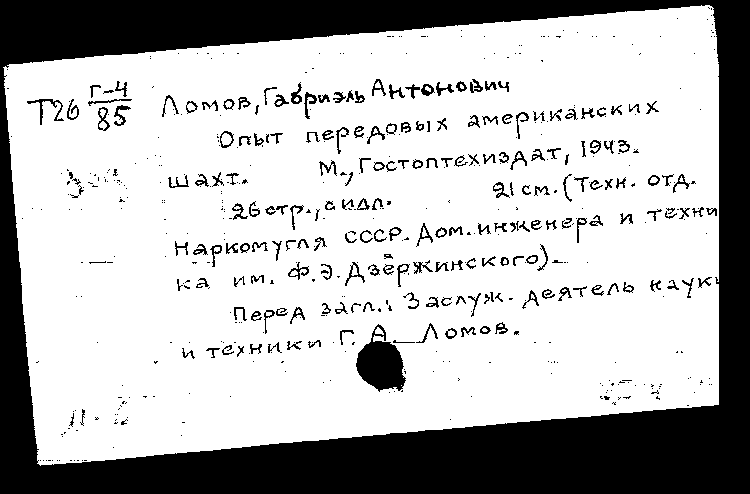 Т26 Г-4/85 Ломов, Габриэль Антонович
Опыт передовых американских
шахт. М., Гостоптехиздат, 1943.
26 стр., с илл. 21 см. (Техн. отд.
Наркомугля СССР. Дом. инженера и техни
ка им. Ф.Э. Дзержинского).
Перед загл.: Заслуж. деятель науки
и техники Г. А. Ломов.